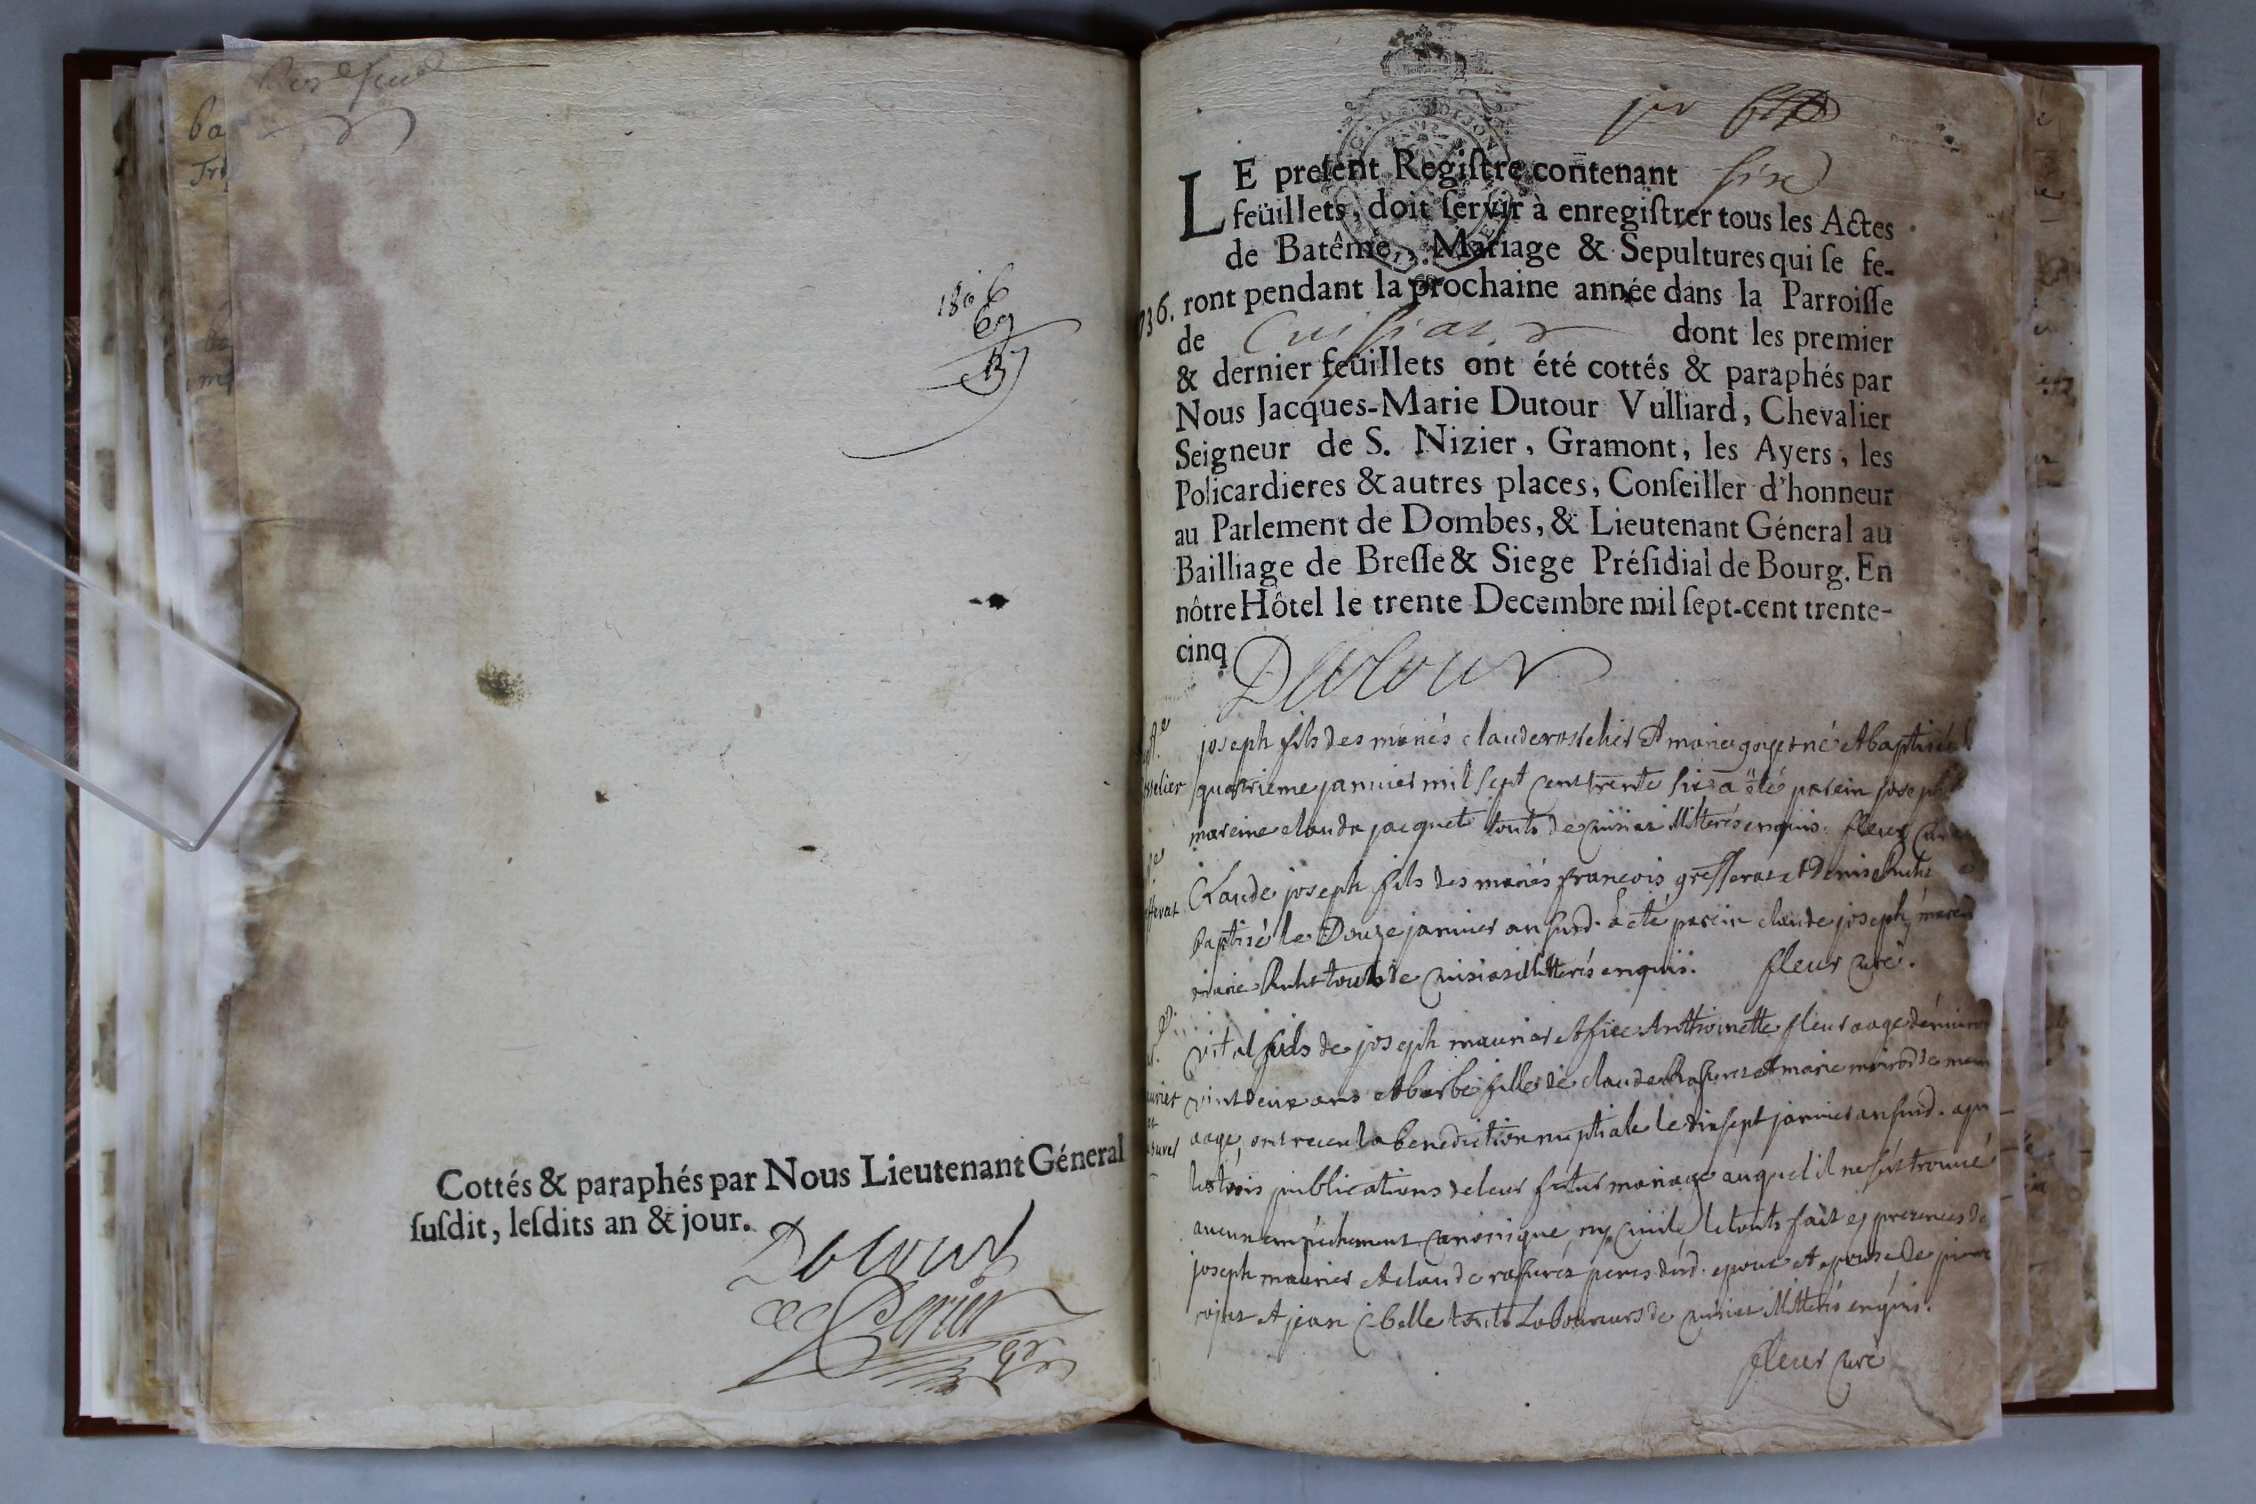 Cottés & paraphés par Nous Lieutenant Géneral
ſuſdit, leſdits an & jour.
Dutour
LE preſent Regiſtre contenant six
feüillets, doit ſervir à enregiſtrer tous les Actes
de Batême, Mariage & Sepultures qui ſe fe-
ront pendant la prochaine année dans la Parroiſſe
de Cuisiat dont les premier
& dernier feüillets ont été cottés & paraphés par
Nous Jacques-Marie Dutour Vulliard, Chevalier
Seigneur de S. Nizier, Gramont, les Ayers, les
Policardieres & autres places, Conſeiller d'honneur
au Parlement de Dombes, & Lieutenant Géneral au
Bailliage de Breſſe & Siege Préſidial de Bourg. En
nôtre Hôtel le trente Decembre mil ſept-cent trente-
cinq
Dutour
joseph fils des mariés claude rosselier et marie goyet né et baptisé
quatrieme janvier mil sept cent trente six a été parein joseph
mareine clauda jacquet touts de cuisiat illitterés enquis. fleur curé
Claude joseph fils des mariés francois grefferat et Denise
baptisé le Douze janvier an susd. a été parein claude joseph mareine
marie touts de cuisiat illitterés enquis. fleur curé.
vital fils de joseph maurier et fue Anthoinette fleur aagé d'environ
vint deux ans et barbe fille de claude rasurel et marie
aage, ont receu la benediction nuptiale le dixsept janvier an susd. apres
les trois publications de leur futur mariage auquel il ne s'est trouvé
aucun empêchement canonique, ny civile le touts fait es presences de
joseph maurier et claude rasurel peres desd. epoux et epouse De pierre
et jean touts Laboureurs de cuisiat illitterés enquis.
fleur curé